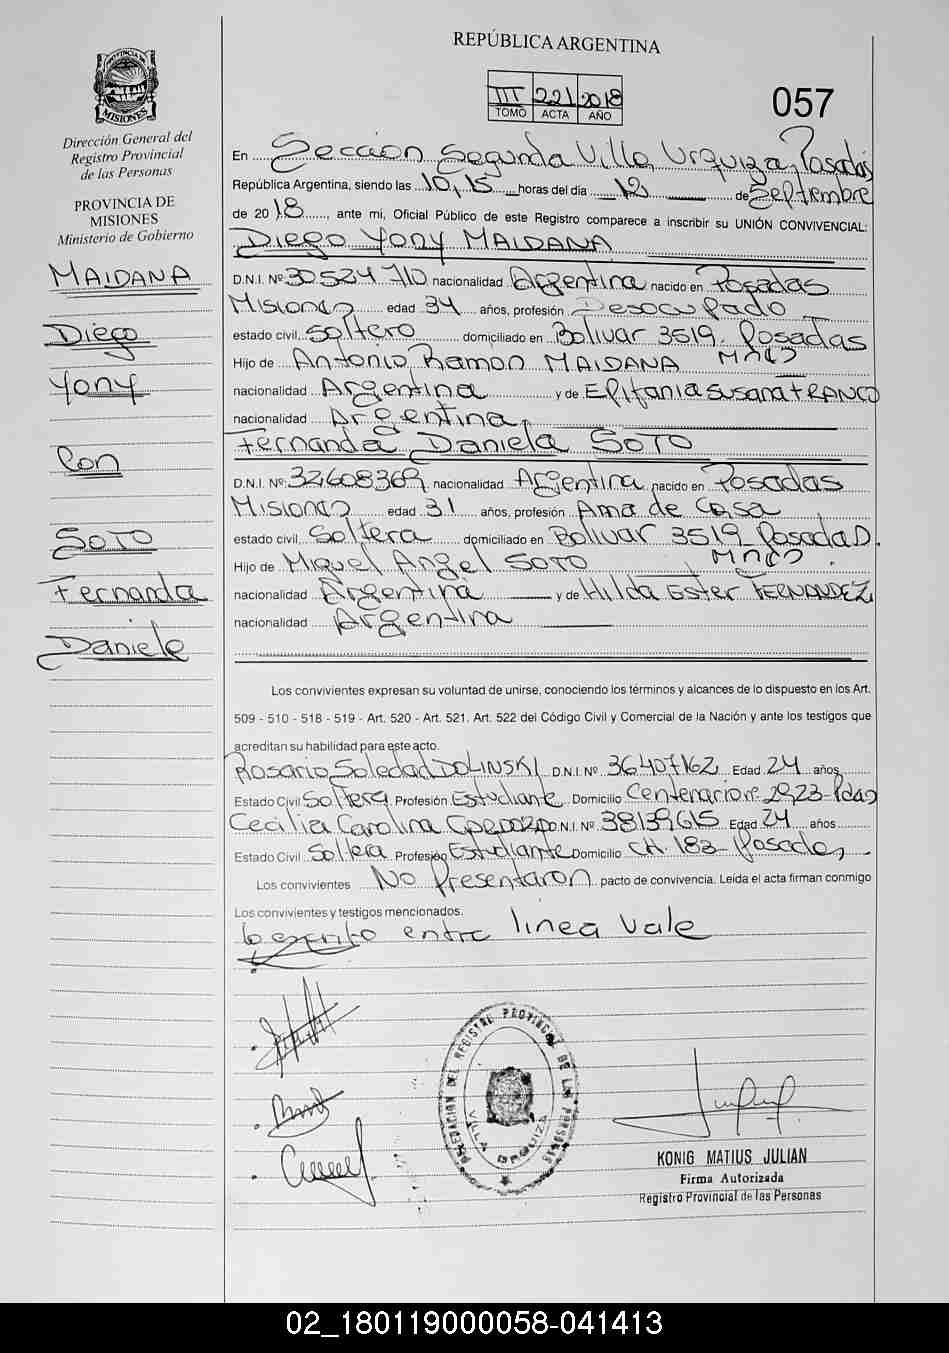 REPÚBLICA ARGENTINA
III 221 2018
TOMO ACTA AÑO
057
PROVINCIA DE
MISIONES
Dirección General del
Registro Provincial
de las Personas
PROVINCIA DE
MISIONES
Ministerio de Gobierno
MAIDANA
Diego
Yony
Con
SOTO
Fernanda
Daniela
En Sección Segunda Villa Urquiza, Posadas
República Argentina, siendo las 10,15 horas del día 12 de Septiembre
de 2018, ante mí, Oficial Público de este Registro comparece a inscribir su UNIÓN CONVIVENCIAL:
Diego Yony MAIDANA
D.N.I. Nº 30524710 nacionalidad Argentina nacido en Posadas
Misiones edad 34 años, profesión Desocupado
estado civil Soltero domiciliado en Bolivar 3519 Posadas
Hijo de Antonio Ramon MAIDANA Mnes
nacionalidad Argentina y de Epifania Susana FRANCO
nacionalidad Argentina
Fernanda Daniela SOTO
D.N.I. Nº 32608369 nacionalidad Argentina nacido en Posadas
Misiones edad 31 años, profesión Ama de Casa
estado civil Soltera domiciliado en Bolivar 3519 Posadas.
Hijo de Miguel Angel SOTO Mnes
nacionalidad Argentina y de Hilda Ester FERNANDEZ
nacionalidad Argentina
Los convivientes expresan su voluntad de unirse, conociendo los términos y alcances de lo dispuesto en los Art.
509 - 510 - 518 - 519 - Art. 520 - Art. 521. Art. 522 del Código Civil y Comercial de la Nación y ante los testigos que
acreditan su habilidad para este acto.
Rosario Soledad DOLINSKI D.N.I. Nº 36407162 Edad 24 años
Estado Civil Soltera Profesión Estudiante Domicilio Centenario nº 2923-Pdas
Cecilia Carolina D.N.I. Nº 38139615 Edad 24 años
Estado Civil Soltera Profesión Estudiante Domicilio CH 183- Posadas
Los convivientes No Presentaron pacto de convivencia. Leída el acta firman conmigo
Los convivientes y testigos mencionados.
lo escrito entre linea Vale
DEL REGISTRO PROVINCIAL DE LAS PERSONAS
VILLA URQUIZA
KONIG MATIUS JULIAN
Firma Autorizada
Registro Provincial de las Personas
02_180119000058-041413